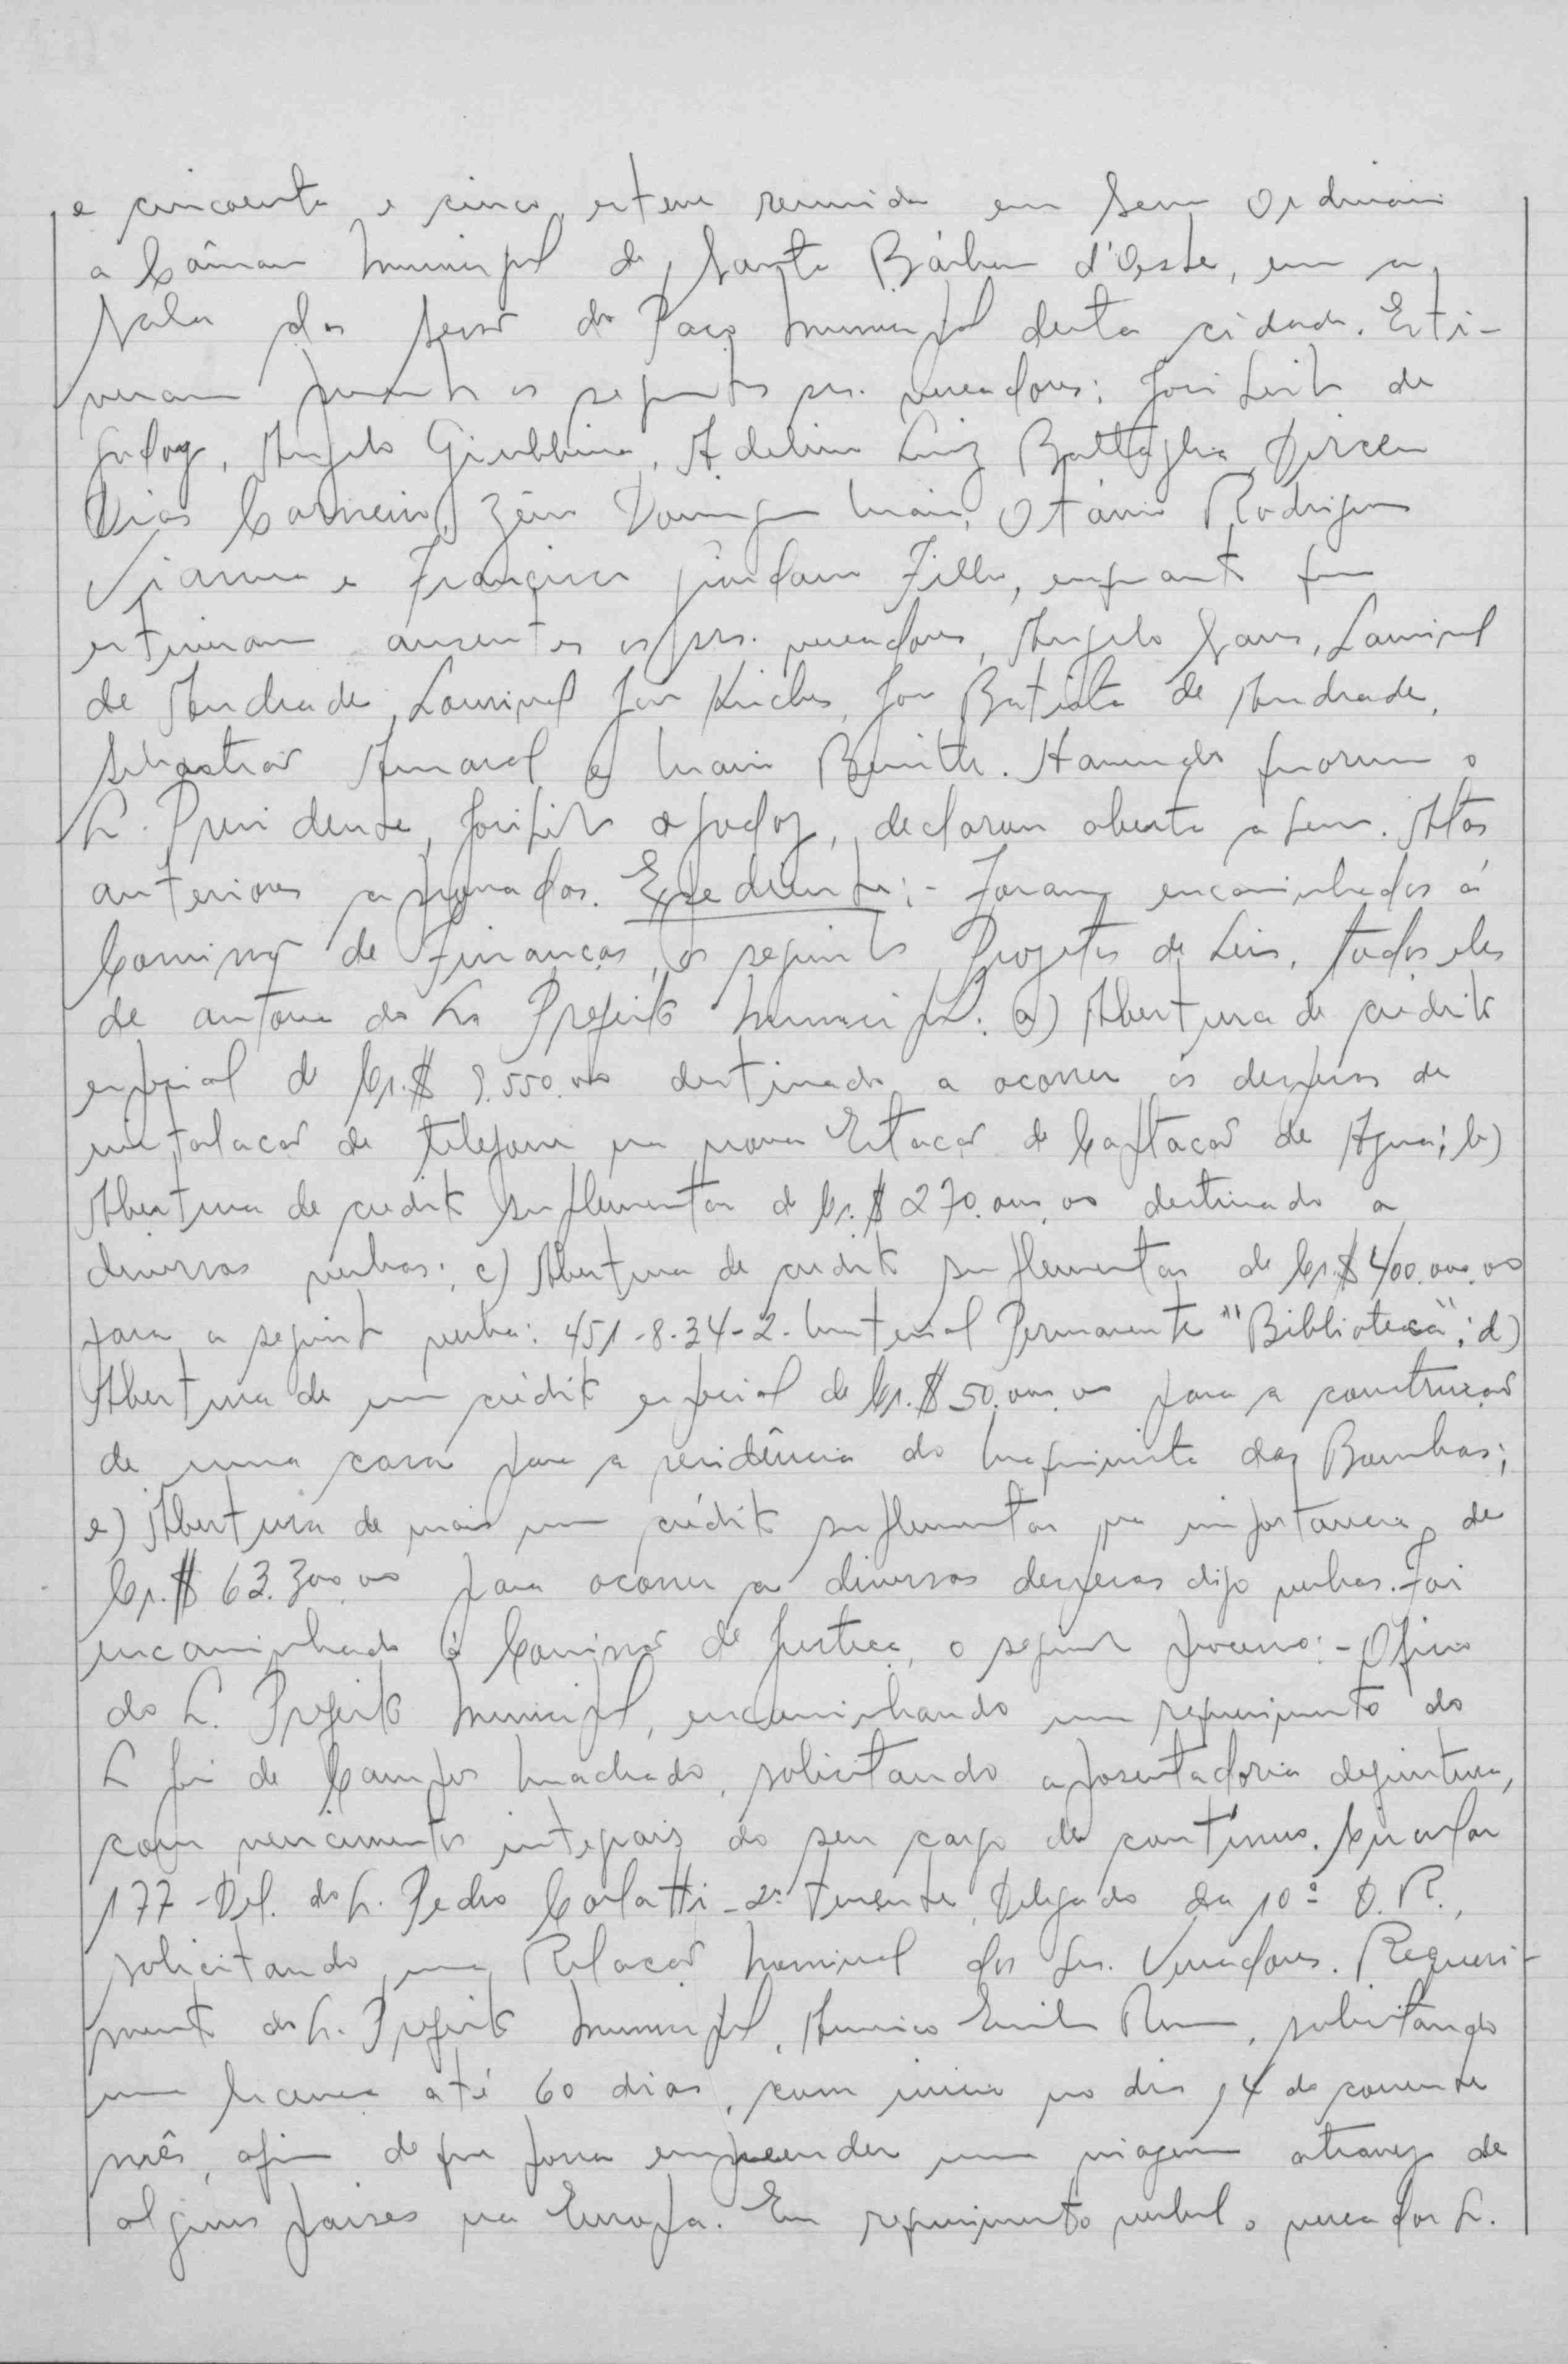 e cincoenta e cinco, esteve reunida em Sessão Ordinária
a Câmara Municipal de Santa Bárbara d'Oeste, em a
sala das sessões do Paço Municipal desta cidade. Esti-
veram presentes os seguintes srs. vereadores: José Leite de
Godoy, Angelo Giubbina, Adelino Luiz Battaglia, Dirceu
Dias Carneiro, Zéno Domingos Maia, Otávio Rodrigues
Vianna e Francisco Giordano Filho, enquanto que
estiveram ausentes os srs. vereadores, Angelo Sans, Lourival
de Andrade, Lourival José, José Batista de Andrade,
Sebastião Amaral e Mario. Havendo quorum o
Sr. Presidente, José Leite de Godoy, declarou aberta a sessão. Atas
anteriores aprovadas. Expediente:- Foram encaminhados á
Comissão de Finanças, os seguintes Projetos de Leis, todos eles
de autoria do Sr. Prefeito Municipal: a) Abertura de crédito
especial de Cr.$ 9.550,00 destinado a ocorrer ás despesas de
instalação de telefone na nova Estação de Captação de Agua; b)
Abertura de credito suplementar de Cr.$ 270.000,00 destinado a
diversas verbas; c) Abertura de credito suplementar de Cr.$ 400.000,00
para a seguinte verba: 451-8-34-2- Material Permanente "Biblioteca"; d)
Abertura de um crédito especial de Cr.$ 50.000,00 para a construção
de uma casa para a residência do Maquinista das Bombas;
e) Abertura de mais um crédito suplementar na importancia de
Cr.$ 63.300,00 para ocorrer a diversas despesas digo verbas. Foi
encaminhado á Comissão de Justiça, o seguinte processo:- Oficio
do Sr. Prefeito Municipal, encaminhando um requerimento do
Sr José de Campos Machado, solicitando aposentadoria definitiva,
com vencimentos integrais do seu cargo de contínuo. Circular
177 - Del. do Sr. Pedro - 2º Tenente, Delegado da 10ª D.R.,
solicitando uma Relação Nominal dos Srs. Vereadores. Requeri-
mento do Sr. Prefeito Municipal, Americo Emilio, solicitando
uma licença até 60 dias, com inicio no dia 14 do corrente
mês, afim de que possa empreender uma viagem atravez de
alguns paises na Europa. Em requerimento verbal o vereador Sr.